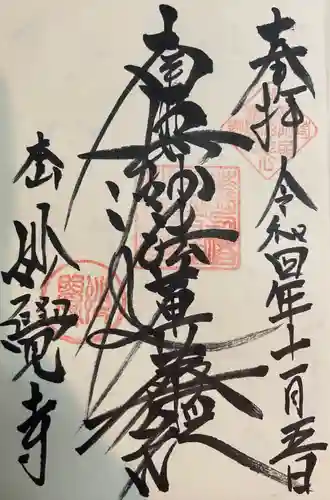 奉拝
令和四年十一月五日
南無妙法蓮華経
山 妙覺寺